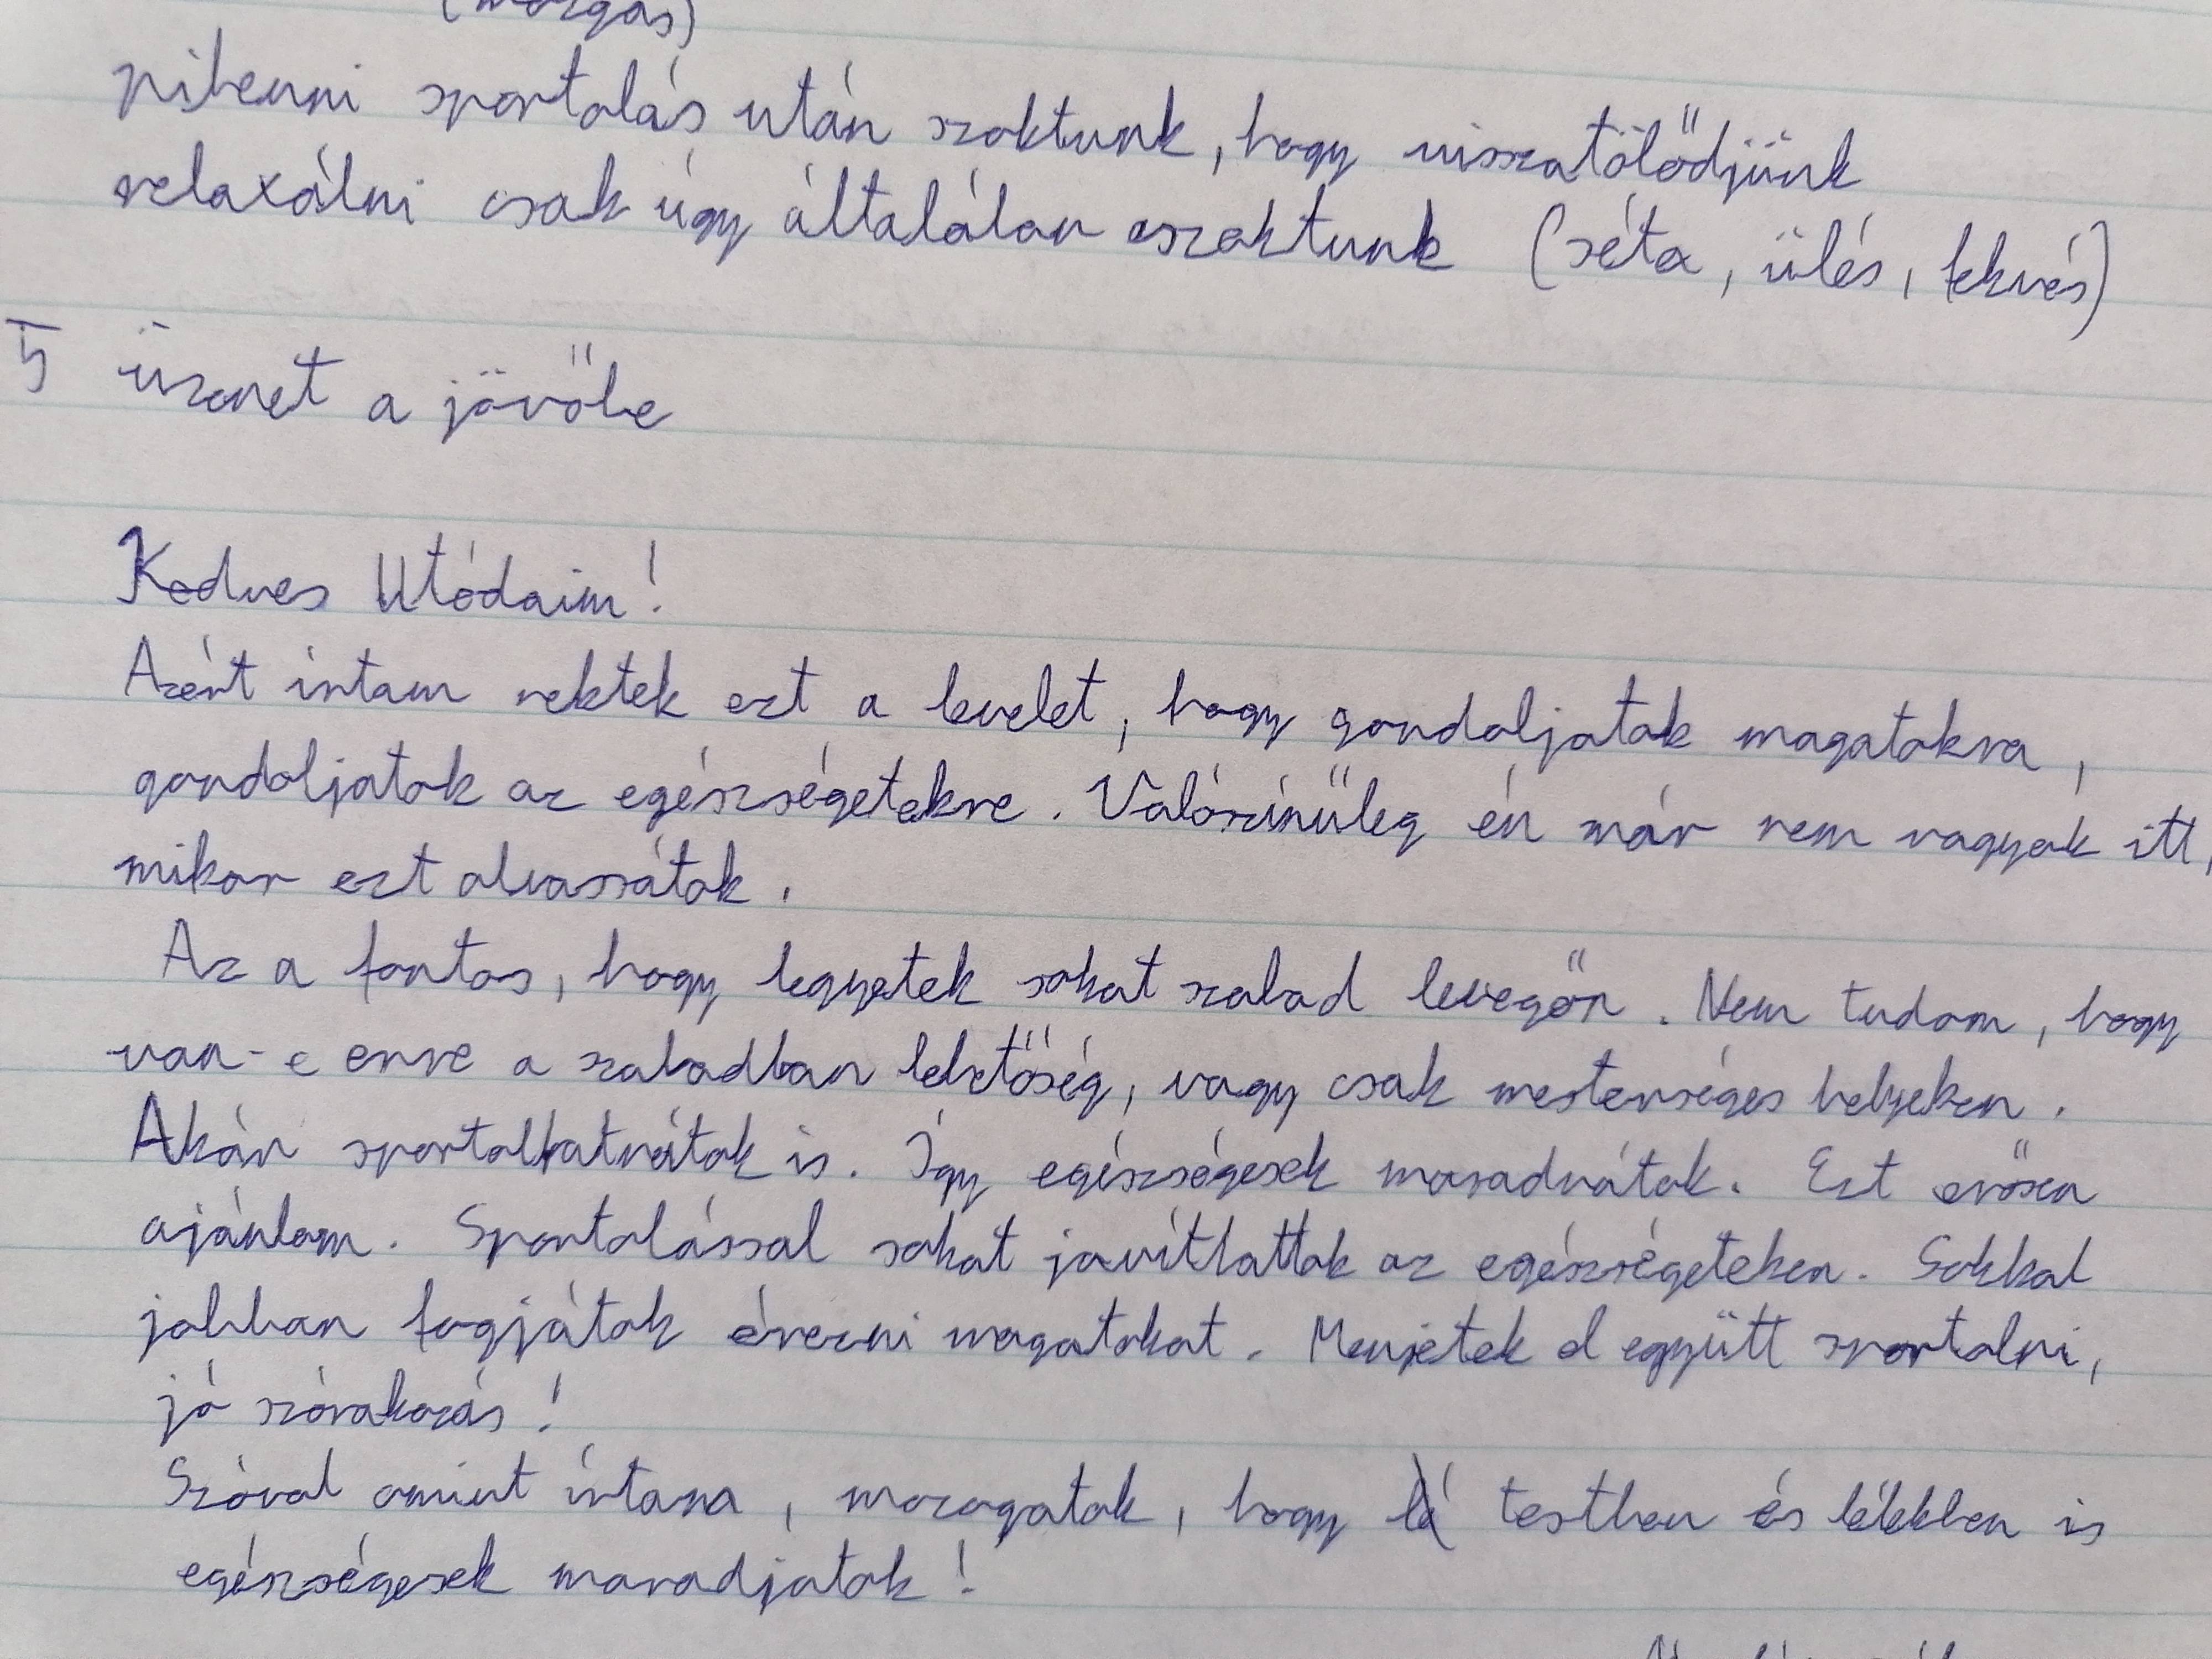 (mozgás)
pihenni sportolás után szoktunk, hogy visszatölődjünk
relaxálni csak úgy általálan szoktunk (séta, ülés, fekvés)
5 üzenet a jövőbe
Kedves Utódaim!
Azért írtam nektek ezt a levelet, hogy gondoljatok magatokra,
gondoljatok az egészségetekre. Valószínűleg én már nem vagyok itt,
mikor ezt olvassátok.
Az a fontos, hogy legyetek sokat szabad levegőn. Nem tudom, hogy
van-e erre a szabadban lehetőség, vagy csak mesterséges helyeken.
Akár sportolhatnátok is. Így egészségesek maradnátok. Ezt erősen
ajánlom. Sportolással sokat javíthattok az egészségeteken. Sokkal
jobban fogjátok érezni magatokat. Menjetek el együtt sportolni,
jó szórakozás!
Szóval amint írtam, mozogatok, hogy testben és lélekben is
egészségesek maradjatok!